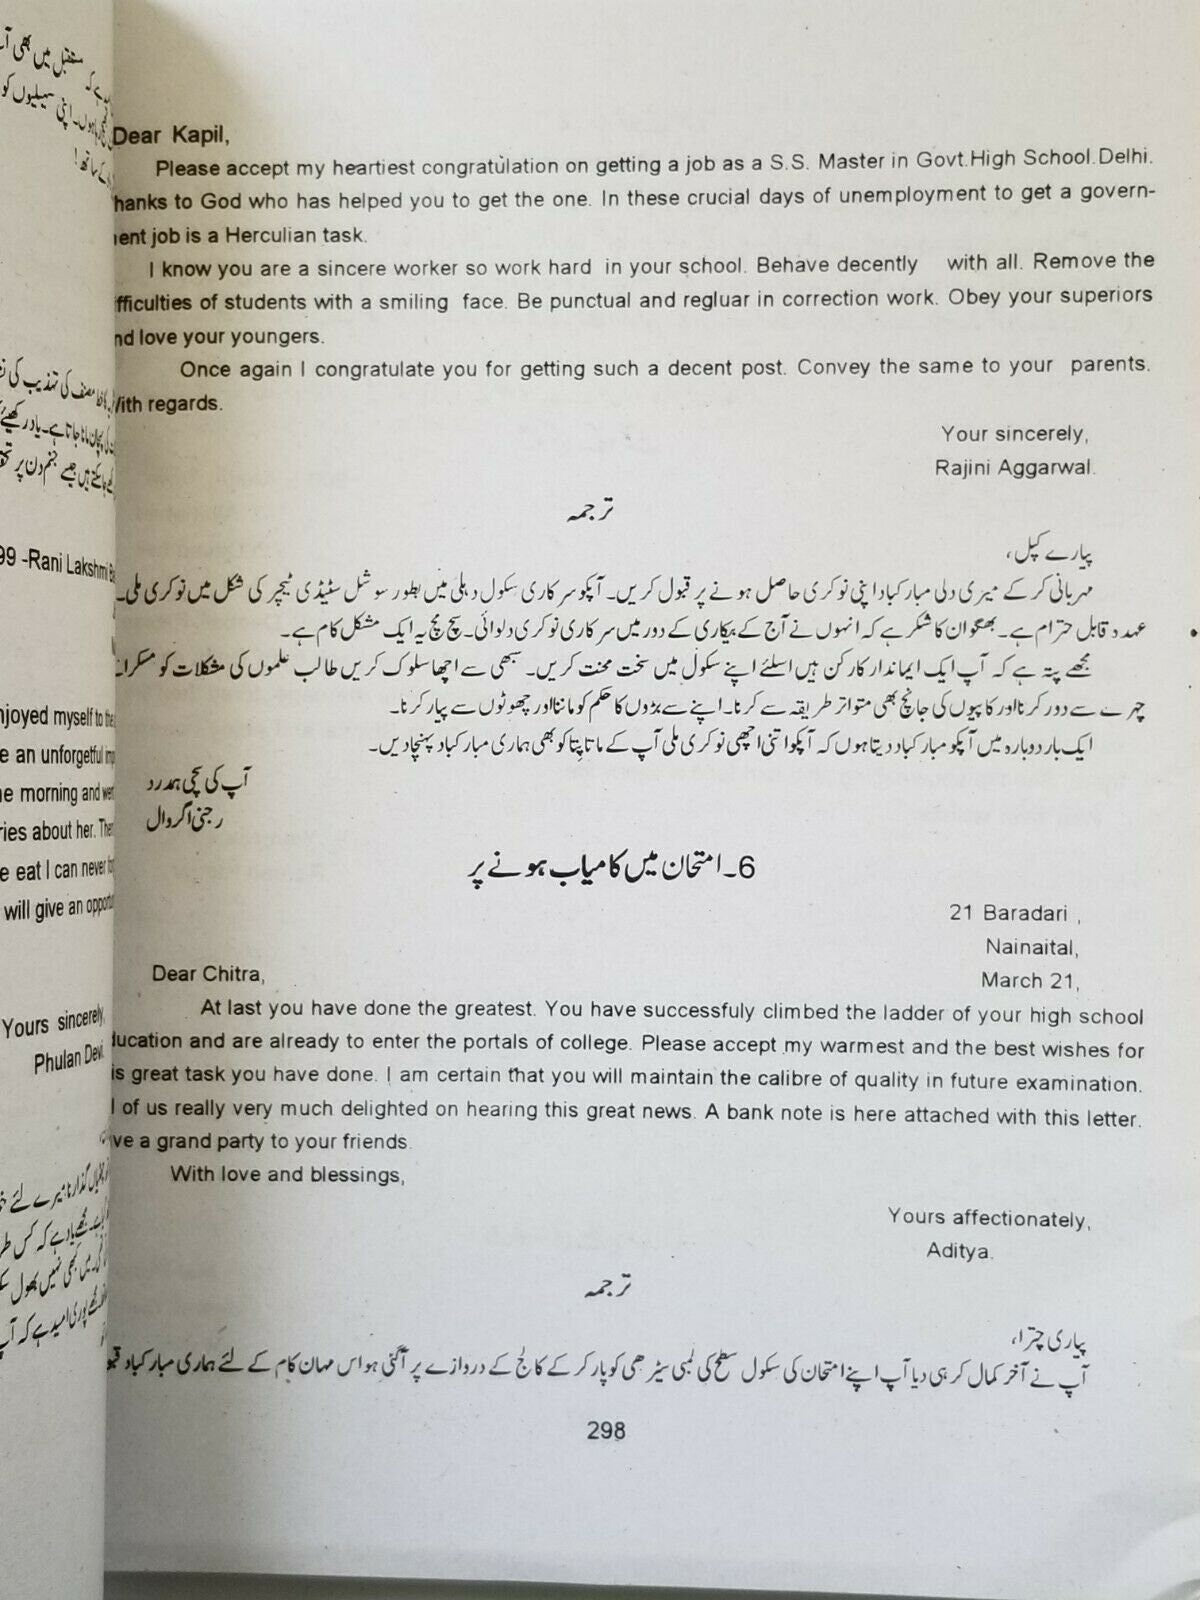 Dear Kapil,
Please accept my heartiest congratulation on getting a job as a S.S. Master in Govt.High School.Delhi.
hanks to God who has helped you to get the one. In these crucial days of unemployment to get a govern-
ent job is a Herculian task.
I know you are a sincere worker so work hard in your school. Behave decently with all. Remove the
fficulties of students with a smiling face. Be punctual and regluar in correction work. Obey your superiors
nd love your youngers.
Once again I congratulate you for getting such a decent post. Convey the same to your parents.
With regards.
Your sincerely,
Rajini Aggarwal.
ترجمہ
پیارے کپل،
مہربانی کر کے میری دلی مبارکباد اپنی نوکری حاصل ہونے پر قبول کریں۔ آپکو سرکاری سکول دہلی میں بطور سوشل سٹیڈی ٹیچر کی شکل میں نوکری ملی۔
عہدہ قابل احترام ہے۔ بھگوان کا شکر ہے کہ انہوں نے آج کے بیکاری کے دور میں سرکاری نوکری دلوائی۔ سچ مچ یہ ایک مشکل کام ہے۔
مجھے پتہ ہے کہ آپ ایک ایماندار کارکن ہیں اسلئے اپنے سکول میں سخت محنت کریں۔ سبھی سے اچھا سلوک کریں طالب علموں کی مشکلات کو مسکراتے
چہرے سے دور کرنا اور کاپیوں کی جانچ بھی متواتر طریقہ سے کرنا۔ اپنے سے بڑوں کا حکم کو ماننا اور چھوٹوں سے پیار کرنا۔
ایک بار دوبارہ میں آپکو مبارکباد دیتا ہوں کہ آپکو اتنی اچھی نوکری ملی آپ کے ماتا پتا کو بھی ہماری مبارکباد پہنچا دیں۔
آپ کی سچی ہمدرد
رجنی اگروال
6۔ امتحان میں کامیاب ہونے پر
21 Baradari ,
Nainaital,
March 21,
Dear Chitra,
At last you have done the greatest. You have successfuly climbed the ladder of your high school
ducation and are already to enter the portals of college. Please accept my warmest and the best wishes for
is great task you have done. I am certain that you will maintain the calibre of quality in future examination.
l of us really very much delighted on hearing this great news. A bank note is here attached with this letter.
ve a grand party to your friends.
With love and blessings,
Yours affectionately,
Aditya.
ترجمہ
پیاری چترا،
آپ نے آخر کمال کر ہی دیا آپ اپنے امتحان کی سکول سطح کی لمبی سیڑھی کو پار کر کے کالج کے دروازے پر آ گئی ہو اس مہان کام کے لئے ہماری مبارکباد
298
مستقبل میں بھی
اپنی سہیلیوں کو
مصنف کی تہذیب کی
جاتا ہے۔ یاد رکھیئے
ہیں جیسے جنم دن پر
99 -Rani Lakshmi
njoyed myself to the
e an unforgetful
e morning and
ries about her.
e eat I can never
will give an
Yours sincerely,
Phulan Devi.
گذارنا میرے لئے
یاد ہے کہ کس
میں کبھی نہیں بھول
پوری امید ہے کہ